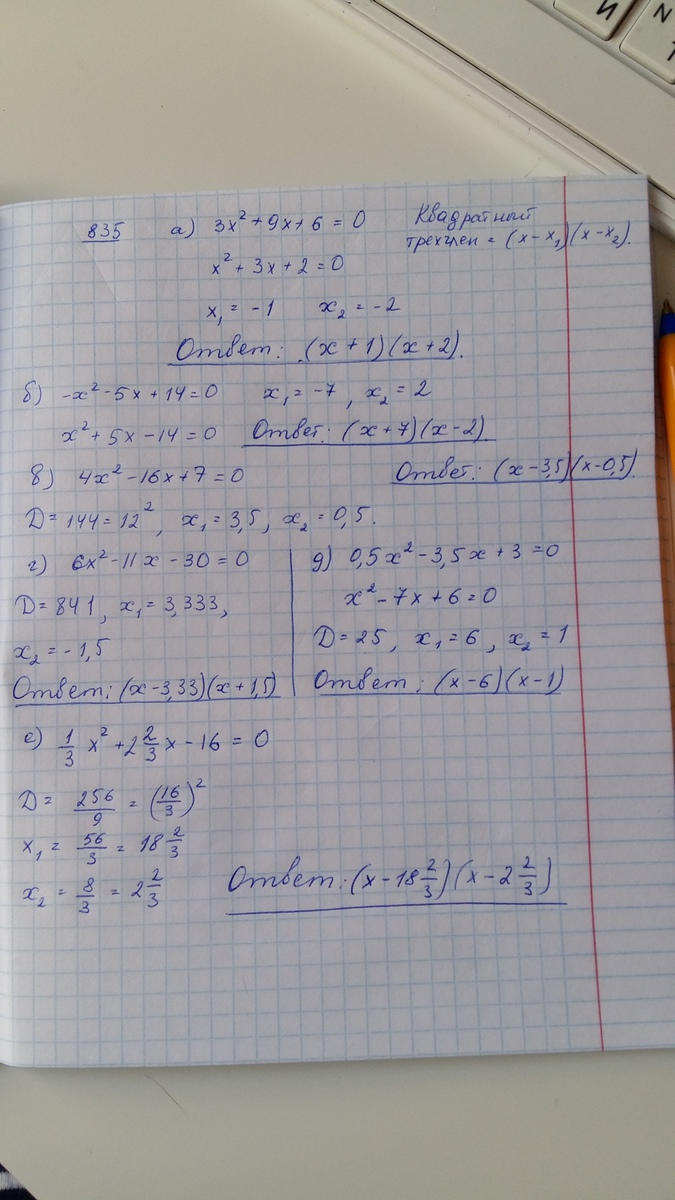 И
N
Т
835 а) 3x² + 9x + 6 = 0 Квадратный
трехчлен = (x - x₁)(x - x₂).
x² + 3x + 2 = 0
x₁ = -1 x₂ = -2
Ответ: (x + 1)(x + 2).
б) -x² - 5x + 14 = 0 x₁ = -7, x₂ = 2
x² + 5x - 14 = 0 Ответ: (x + 7)(x - 2).
в) 4x² - 16x + 7 = 0 Ответ: (x - 3,5)(x - 0,5).
D = 144 = 12², x₁ = 3,5, x₂ = 0,5.
г) 6x² - 11x - 30 = 0
D = 841, x₁ = 3,333,
x₂ = -1,5
Ответ: (x - 3,33)(x + 1,5)
д) 0,5x² - 3,5x + 3 = 0
x² - 7x + 6 = 0
D = 25, x₁ = 6, x₂ = 1
Ответ: (x - 6)(x - 1)
е) 1/3 x² + 2 2/3 x - 16 = 0
D = 256/9 = (16/3)²
x₁ = 56/3 = 18 2/3
x₂ = 8/3 = 2 2/3
Ответ: (x - 18 2/3)(x - 2 2/3)